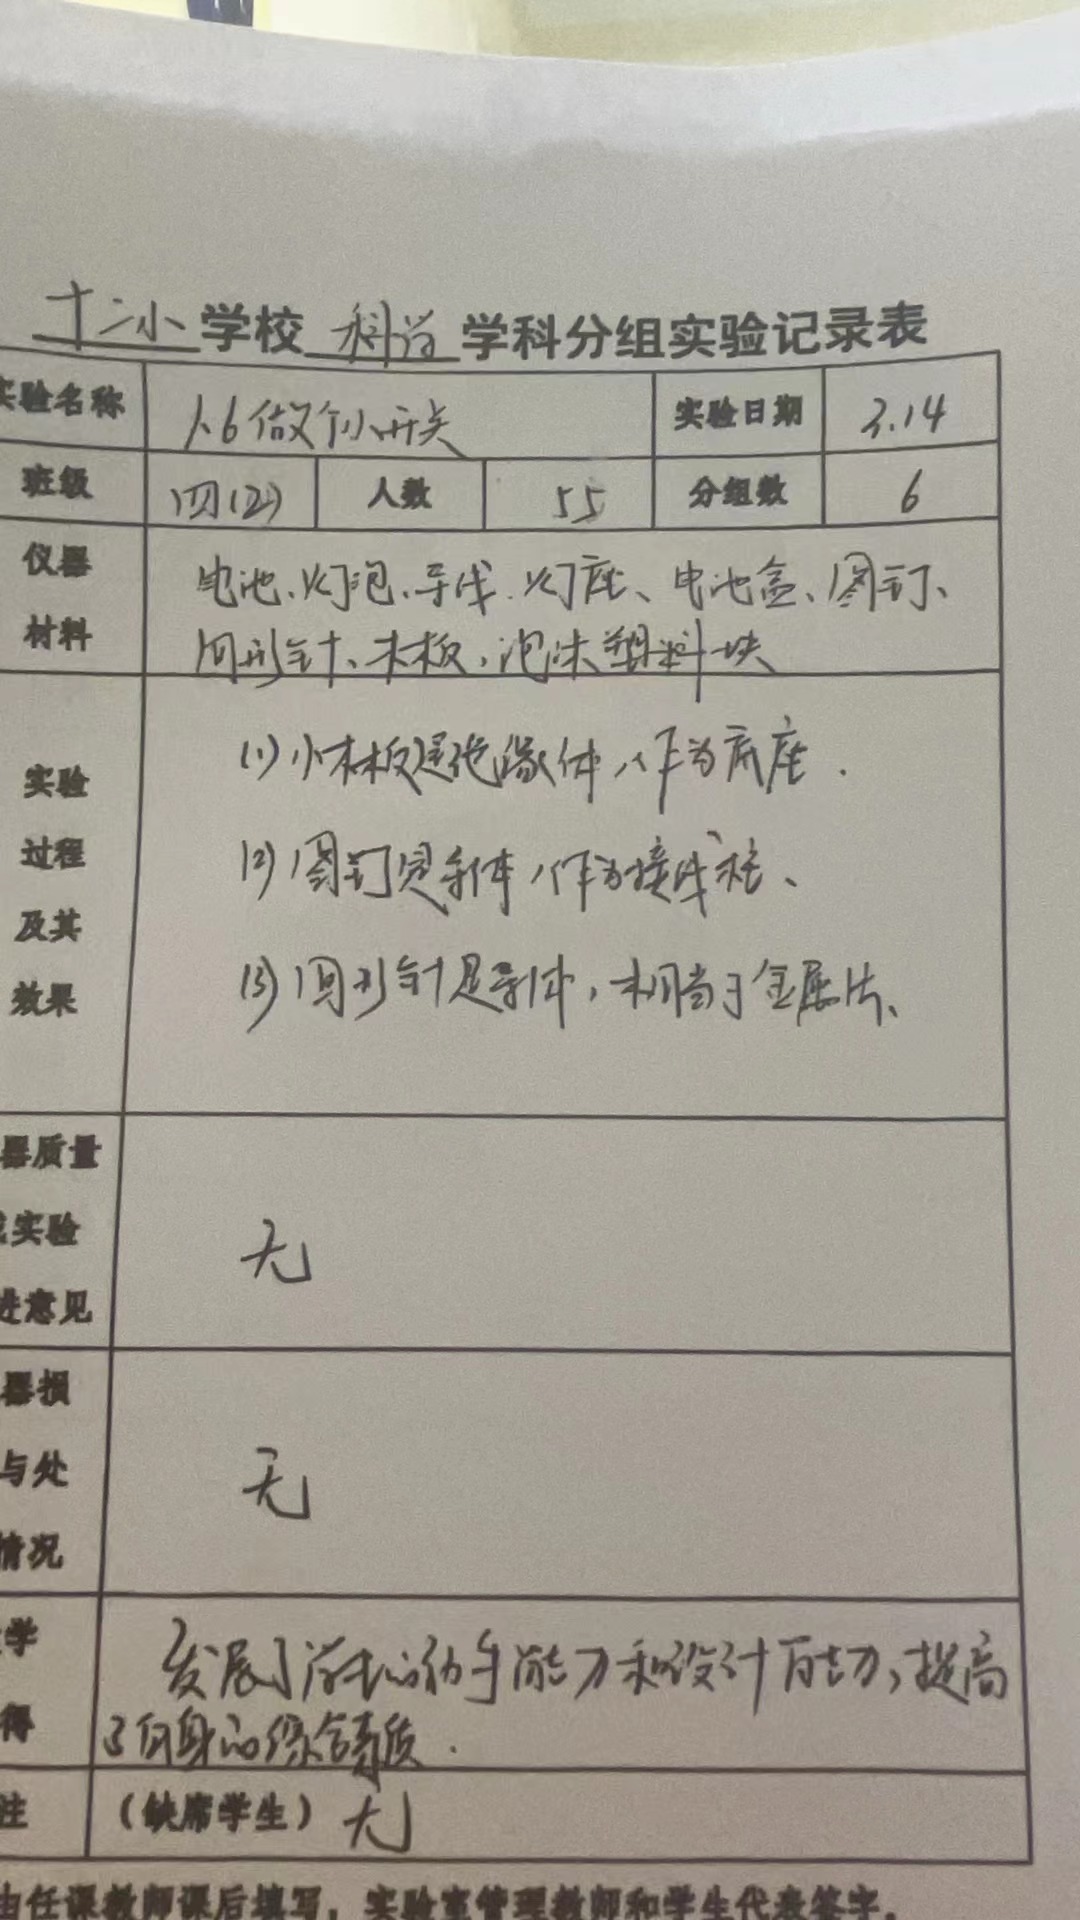 十二小学校 科学 学科分组实验记录表
实验名称 1.6做个小开关 实验日期 3.14
班级 四(2) 人数 55 分组数 6
仪器 电池、灯泡、导线、灯座、电池盒、图钉、
材料 回形针、木板、泡沫塑料块
实验 (1)小木板是绝缘体,作为底座.
过程 (2)图钉是导体,作为接线柱、
及其
效果 (3)回形针是导体,相当于金属片、
器质量
实验 无
进意见
器损
与处 无
情况
学 发展了学生的动手能力和设计能力,提高
得 了自身的综合素质.
注 (缺席学生) 无
由任课教师课后填写,实验室管理教师和学生代表签字。